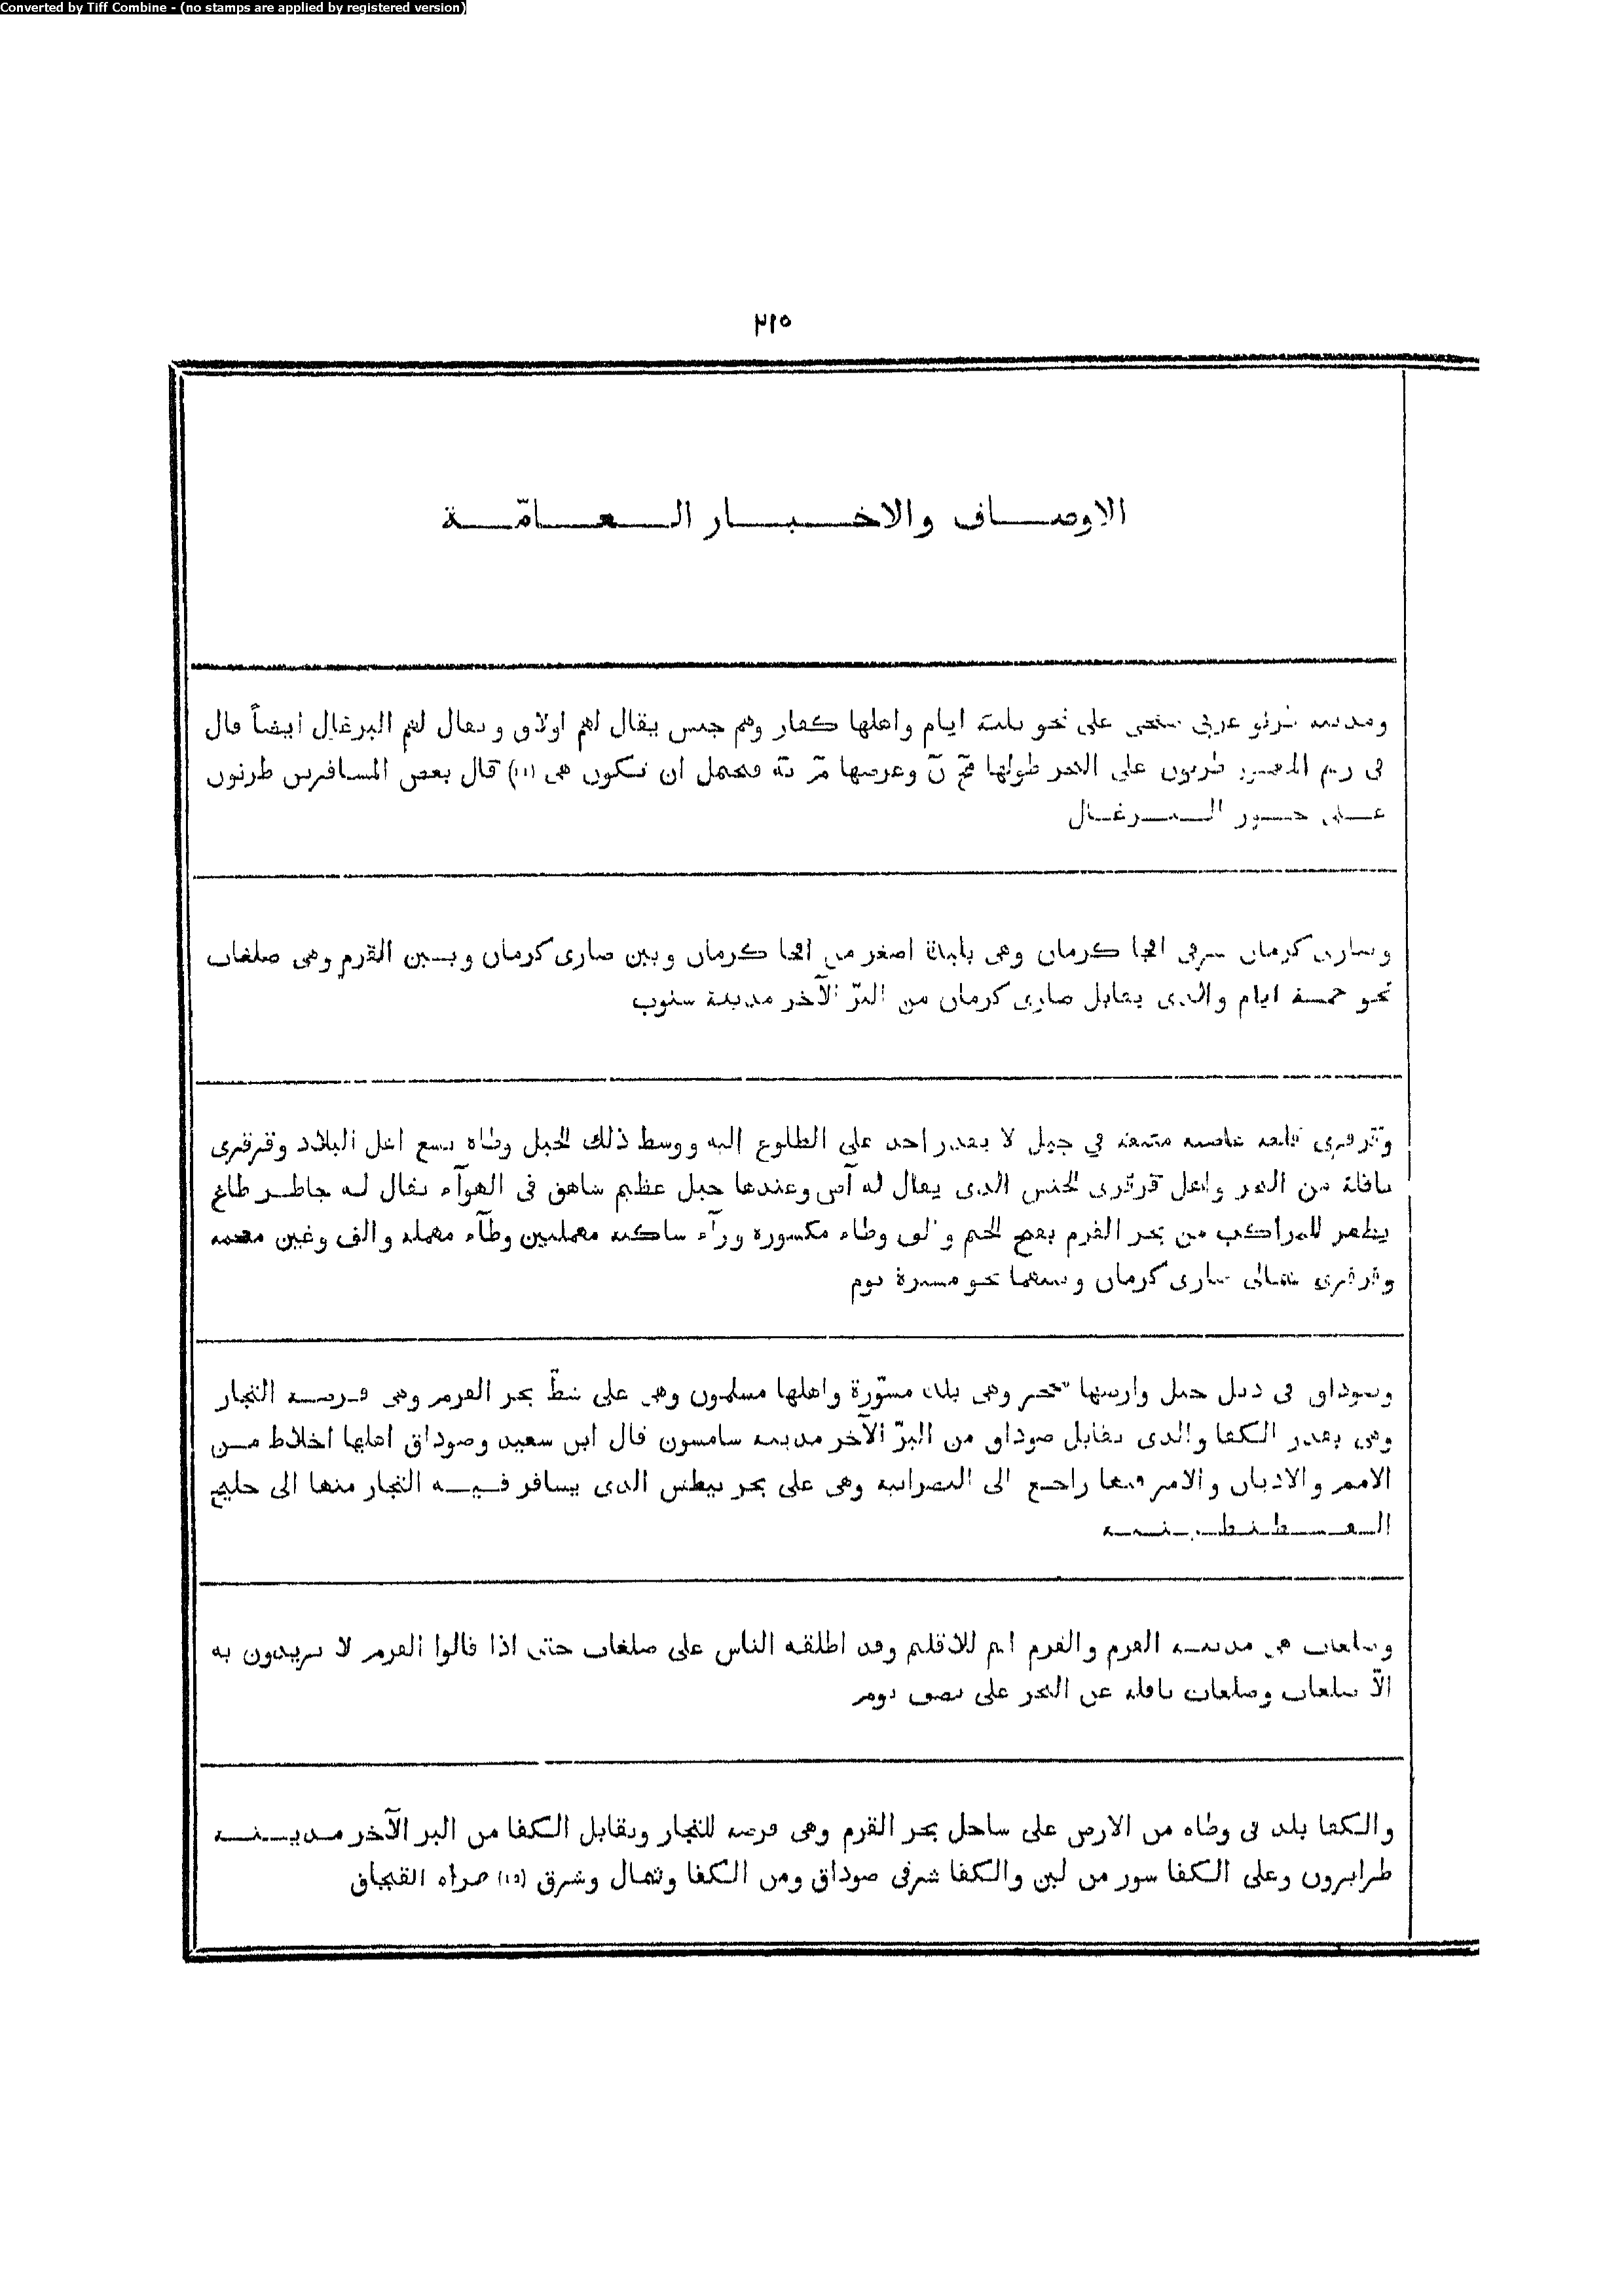 Converted by Tiff Combine - (no stamps are applied by registered version)
٢١٥
الاوصاف والاخبار العامّة
ومدينة طرنو غربى صقجى على نحو ثلثة ايام واهلها كفار وهم جنس يقال لهم اولاق ويقال لهم البرغال ايضاً قال
فى رسم المعمور طرنون على البحر طولها وعرضها فيحتمل ان تكون هى (١١) قال بعض المسافرين طرنون
على البرغال
وصارى كرمان شرقى اقجا كرمان وهى بليدة اصغر من اقجا كرمان وبين صارى كرمان وبين القرم وهى صلغات
نحو خمسة ايام والذى يقابل صارى كرمان من البرّ الآخر مدينة سنوب
وقرقرى قلعة عاصية متمنعة في جبل لا يقدر احد على الطلوع اليه ووسط ذلك الجبل وطاة تسع اهل البلاد وقرقرى
نائية من البحر واهل قرقرى الجنس الذى يقال له آص وعندها جبل عظيم شاهق فى الهوآء يقال له جاطر طاغ
يظهر للمراكب من بحر القرم بفتح الجيم والف وطاء مكسورة ورآء ساكنة مهملتين وطآء مهملة والف وغين معجمة
وقرقرى شمالى صارى كرمان وبينهما نحو مسيرة يوم
وصوداق فى ذيل جبل وارضها وهى بلد مسوّرة واهلها مسلمون وهى على شطّ بحر القرم وهى فرضة التجار
وهى بقدر الكفا والذى يقابل صوداق من البرّ الآخر مدينة سامسون قال ابن سعيد وصوداق اهلها اخلاط من
الامم والاديان والامر فيها راجع الى النصرانية وهى على بحر نيطس الذى يسافر فيه التجار منها الى خليج
القسطنطينية
وصلغات هى مدينة القرم والقرم اسم للاقليم وقد اطلقه الناس على صلغات حتى اذا قالوا القرم لا يريدون به
الّا صلغات وصلغات نائية عن البحر على نصف يوم
والكفا بلد فى وطاه من الارض على ساحل بحر القرم وهى فرضة للتجار ويقابل الكفا من البر الآخر مدينة
طرابزون وعلى الكفا سور من لبن والكفا شرقى صوداق ومن الكفا وشمال وشرق (١٥) صراه القبجاق